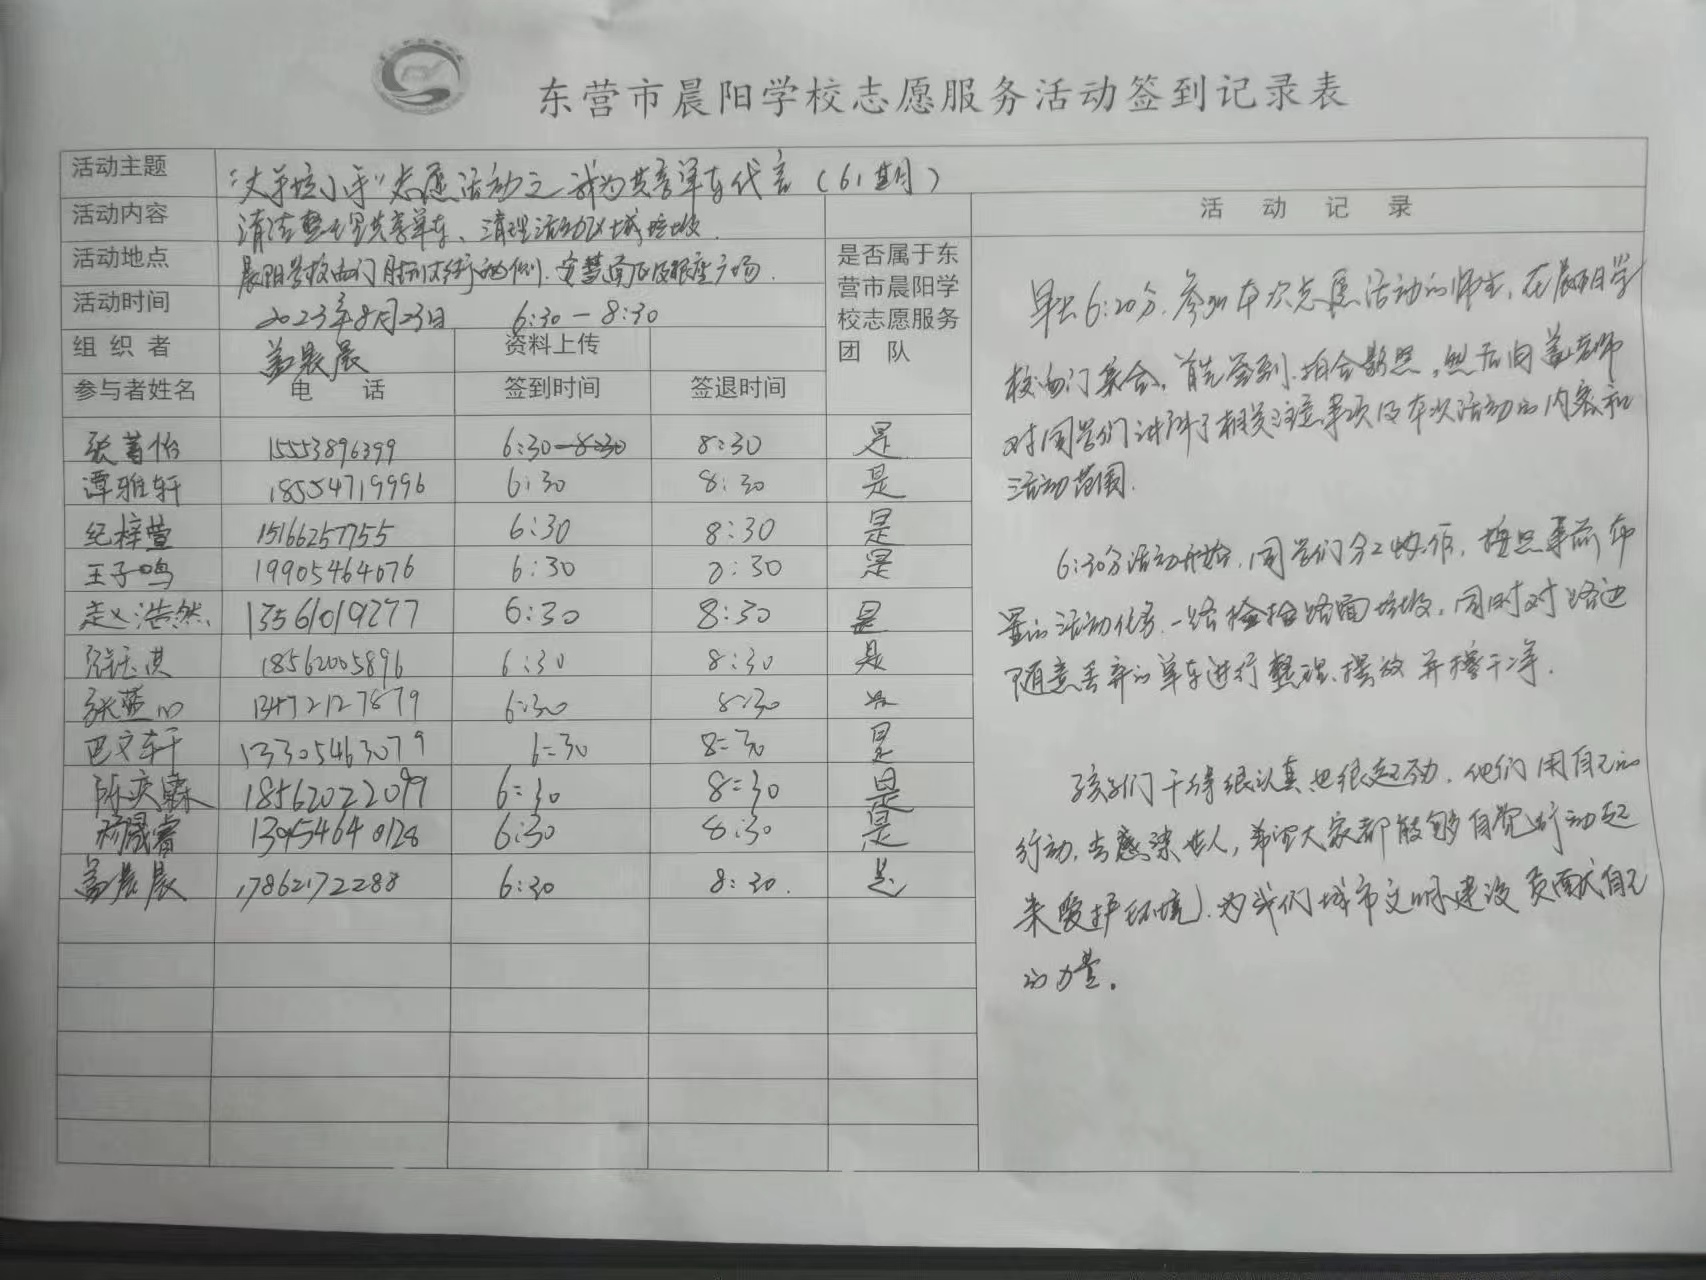 东营市晨阳学校志愿服务活动签到记录表
活动主题 “大手拉小手”志愿活动之我为共享单车代言（61期）
活动内容 清洁整理共享单车、清理活动区域垃圾.
活动地点 晨阳学校西门 两侧.安慧南区及银座广场.
活动时间 2023年8月23日 6:30-8:30
组织者 盖晨晨 资料上传
是否属于东
营市晨阳学
校志愿服务
团 队
参与者姓名 电 话 签到时间 签退时间
张菁怡 15553896399 6:30 8:30 是
谭雅轩 18554719996 6:30 8:30 是
纪梓萱 15166257755 6:30 8:30 是
王子鸣 19905464676 6:30 8:30 是
赵浩然 13561019277 6:30 8:30 是
张钰淇 18562005896 6:30 8:30 是
张蓝心 13472127879 6:30 8:30 是
巴文轩 13305463079 6=30 8=30 是
陈奕霖 18562022099 6=30 8=30 是
杨晟睿 13954640128 6:30 8:30 是
盖晨晨 17862172288 6:30 8:30. 是
活 动 记 录
早上6:20分.参加本次志愿活动的师生,在晨阳学
校西门集合,首先签到.拍合影照,然后由盖老师
对同学们讲解了相关注意事项及本次活动的内容和
活动范围.
6:30分活动开始,同学们分工协作,按照事前布
置的活动任务.一路捡拾路面垃圾,同时对路边
随意丢弃的单车进行整理、摆放并擦干净.
孩子们干得很认真也很起劲.他们用自己的
行动,去感染世人,希望大家都能够自觉行动起
来爱护环境,为我们城市文明建设贡献自己
的力量.